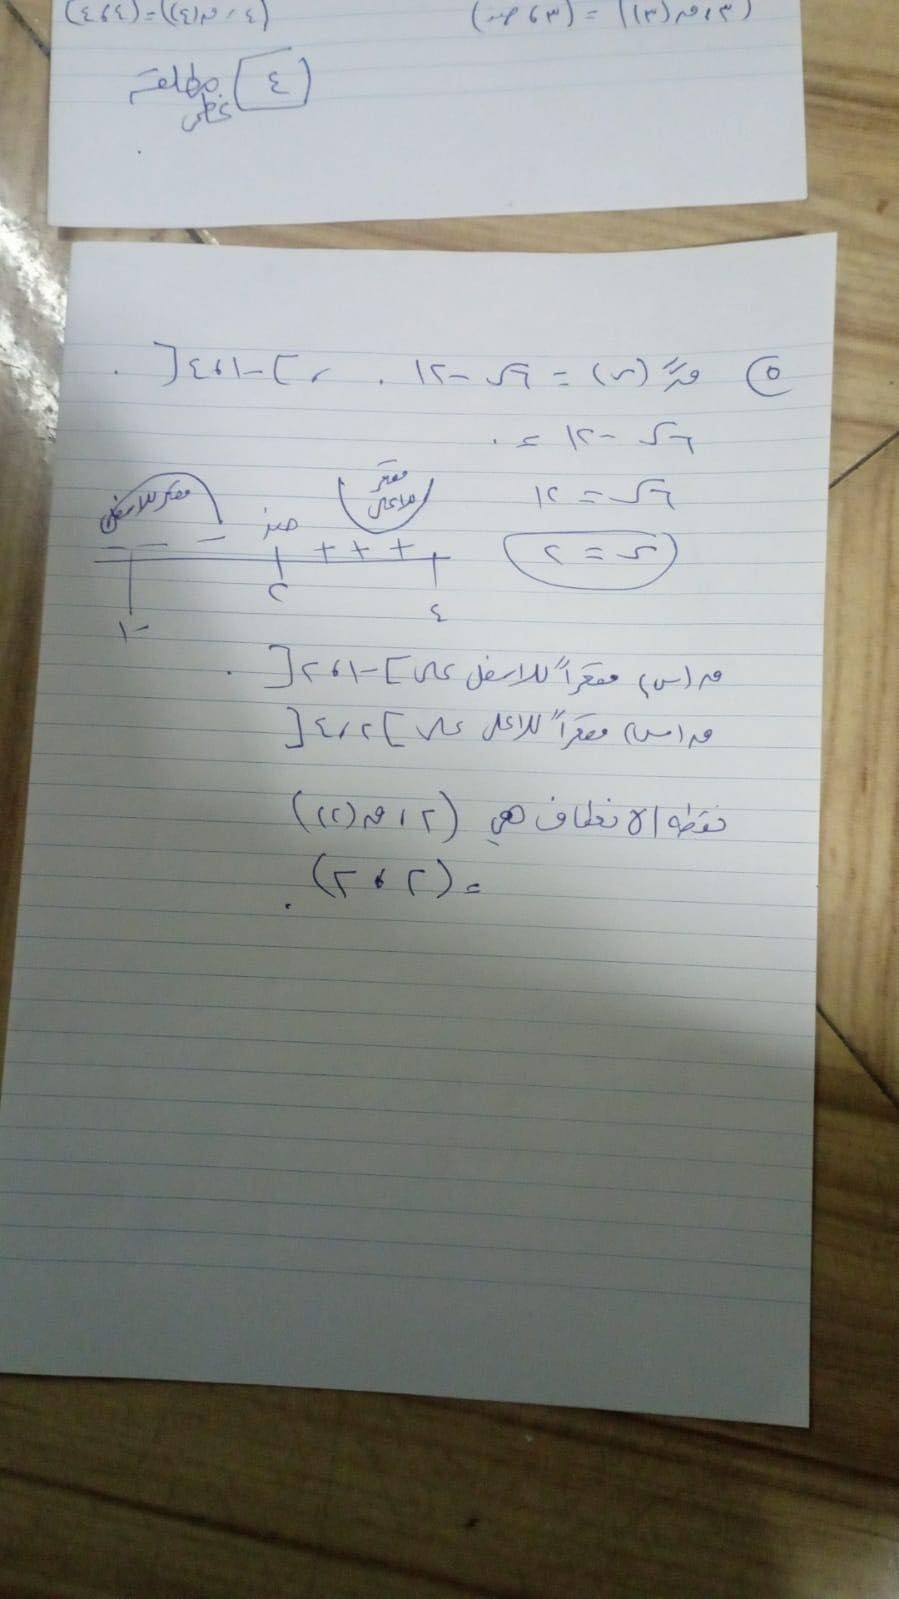 (٣، ق(٣)) = (٣، صفر) (٤، ق(٤)) = (٤، ٤)
(٤) مطلقة
عظمى
٥ قً(س) = ٦س - ١٢ ، ]-١، ٤[
٦س - ١٢ = ٠
٦س = ١٢
س = ٢
مقعر للأعلى
مقعر للاسفل
صفر
- - - + + +
-١ ٢ ٤
ق(س) مقعراً للاسفل على ]-١، ٢[
ق(س) مقعراً للاعلى على ]٢، ٤[
نقطه الانعطاف هي (٢، ق(٢))
= (٢، ٢)